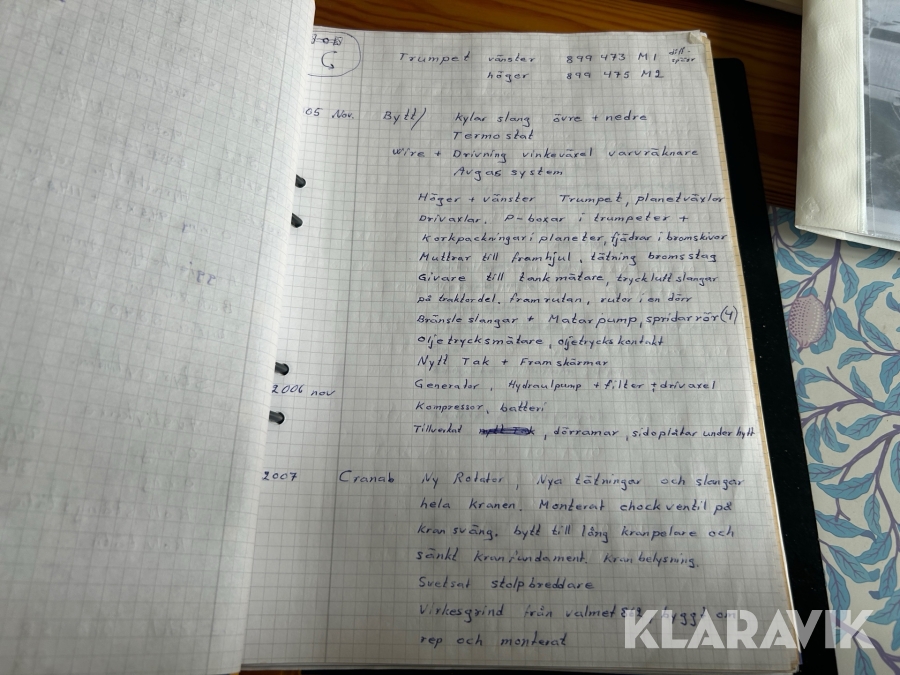 Trumpet vänster 899 473 M1
höger 899 475 M2
05 Nov. Bytt/ kylar slang övre + nedre
Termostat
Wire + Drivning vinkelväxel varvräknare
Avgas system
Höger + vänster Trumpet, planetväxlar
Drivaxlar. P-boxar i trumpeter +
Korkpackningar i planeter, fjädrar i bromskivor
Muttrar till framhjul. tätning bromsstag
Givare till tankmätare, tryckluftslangar
på traktordel. framrutan, rutor i en dörr
Bränsle slangar + Matarpump, spridarrör (4)
oljetrycksmätare, oljetryckskontakt
Nytt Tak + Framskärmar
2006 nov Generator, Hydraulpump + filter + drivaxel
Kompressor, batteri
Tillverkat , dörramar, sidoplåtar under hytt
2007 Cranab Ny Rotator, Nya tätningar och slangar
hela kranen. Monterat chockventil på
kransväng. bytt till lång kranpelare och
sänkt kranfundament. Kranbelysning.
Svetsat stolpbreddare
Virkesgrind från valmet byggt om
rep och monterat
KLARAVIK